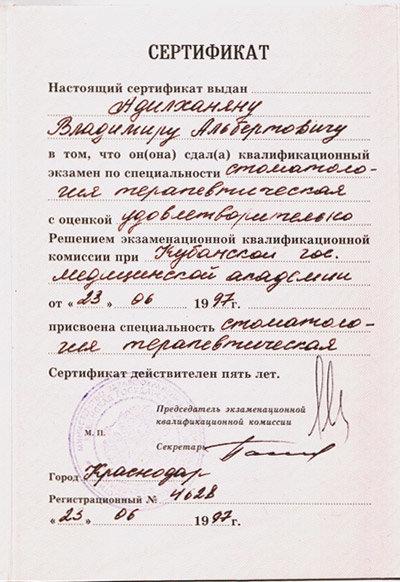 СЕРТИФИКАТ
Настоящий сертификат выдан
Адилханяну
Владимиру Альбертовичу
в том, что он(она) сдал(а) квалификационный
экзамен по специальности стоматоло-
гия терапевтическая
с оценкой удовлетворительно
Решением экзаменационной квалификационной
комиссии при Кубанской гос.
медицинской академии
от « 23 » 06 1997г.
присвоена специальность стоматоло-
гия терапевтическая
Сертификат действителен пять лет.
Председатель экзаменационной
квалификационной комиссии
М. П.
Секретарь
Город Краснодар
Регистрационный № 4628
« 23 » 06 1997г.